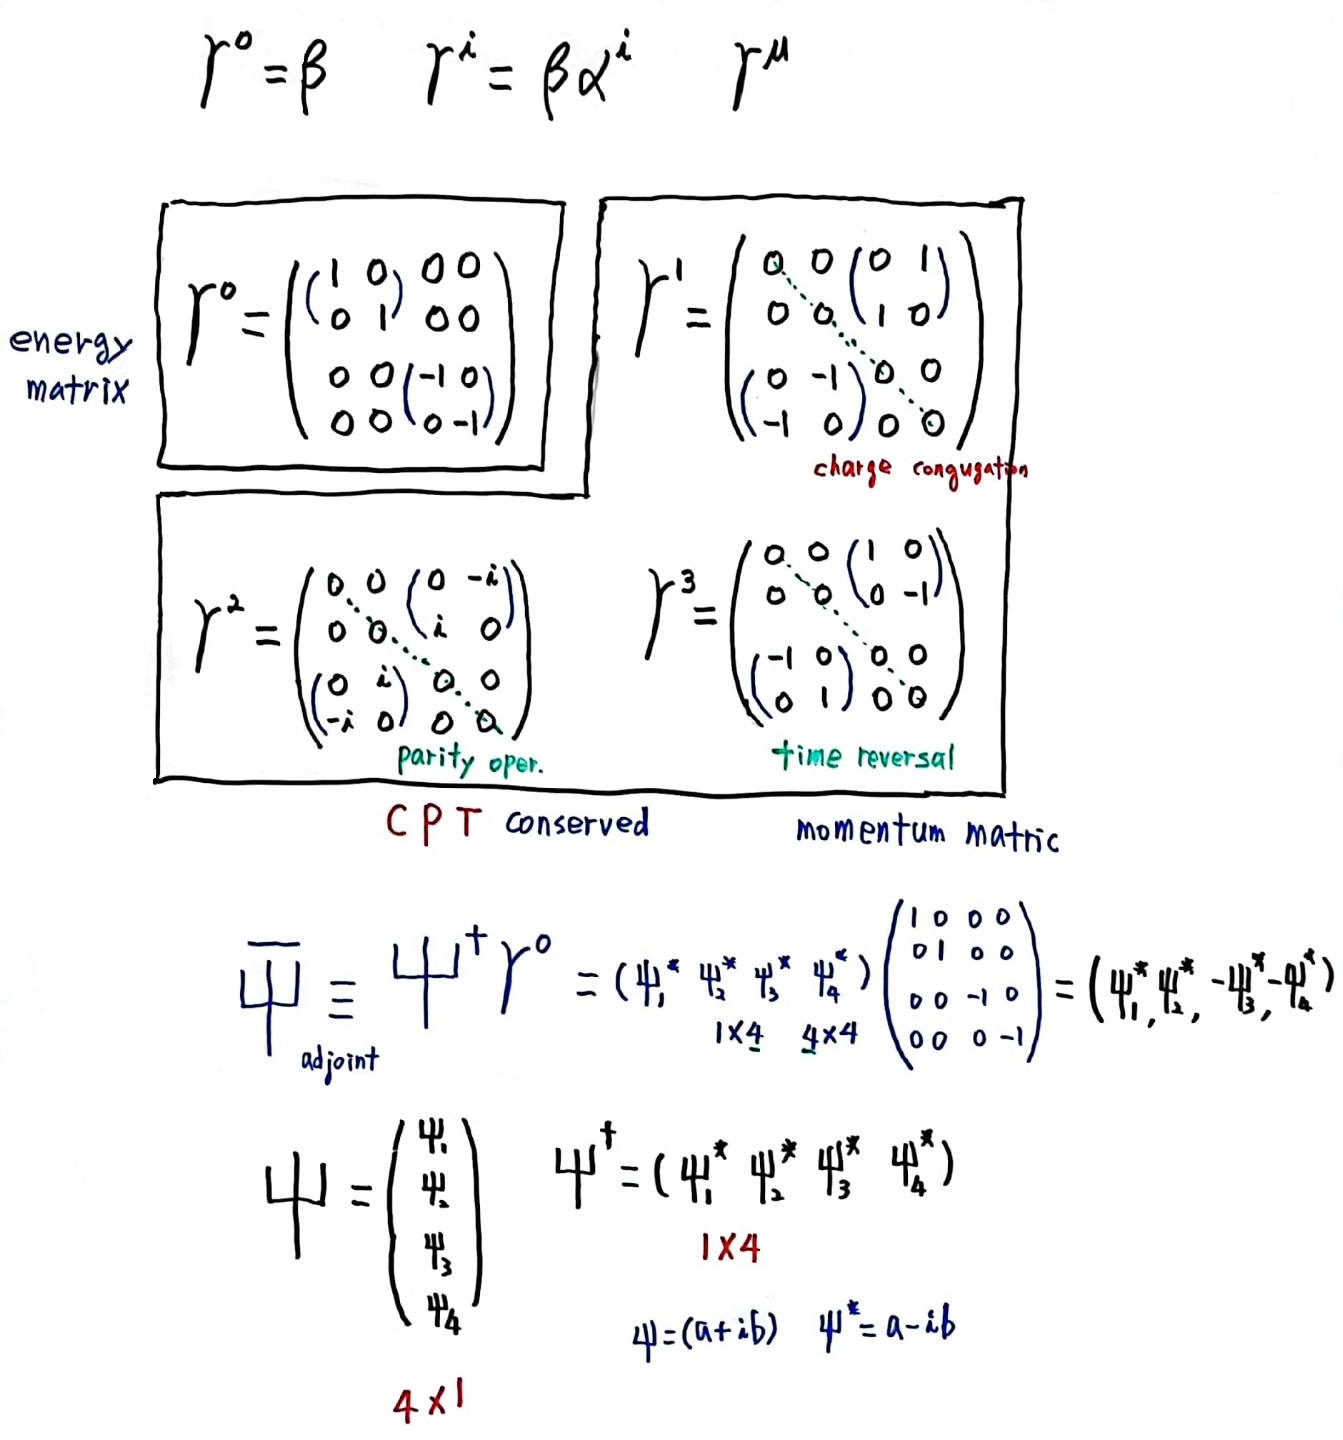 γ⁰ = β γⁱ = βαⁱ γ^μ
energy matrix
γ⁰ = ( 1 0 0 0
0 1 0 0
0 0 -1 0
0 0 0 -1 )
γ¹ = ( 0 0 0 1
0 0 1 0
0 -1 0 0
-1 0 0 0 )
charge congugation
γ² = ( 0 0 0 -i
0 0 i 0
0 i 0 0
-i 0 0 0 )
parity oper.
γ³ = ( 0 0 1 0
0 0 0 -1
-1 0 0 0
0 1 0 0 )
time reversal
CPT conserved momentum matric
Ψ̄ ≡ Ψ†γ⁰ = (Ψ₁* Ψ₂* Ψ₃* Ψ₄*) ( 1 0 0 0
0 1 0 0
0 0 -1 0
0 0 0 -1 ) = (Ψ₁*, Ψ₂*, -Ψ₃*, -Ψ₄*)
adjoint
1×4 4×4
Ψ = ( Ψ₁
Ψ₂
Ψ₃
Ψ₄ )
4×1
Ψ† = (Ψ₁* Ψ₂* Ψ₃* Ψ₄*)
1×4
Ψ=(a+ib) Ψ*=a-ib